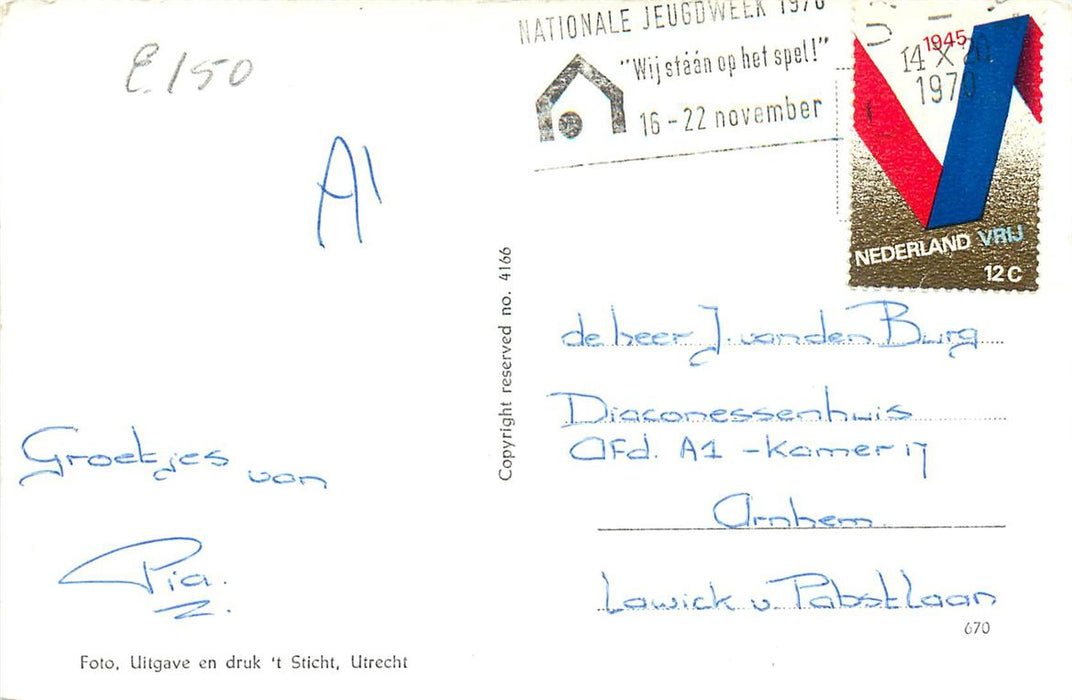 E 150
A1
NATIONALE JEUGDWEEK 1970
"Wij stáán op het spel!"
16 - 22 november
14 X 20
1970
1945
NEDERLAND VRIJ
12 C
Copyright reserved no. 4166
de heer J. van den Burg
Diaconessenhuis
Afd. A1 - Kamer 17
Arnhem
Lawick v. Pabstlaan
670
Groetjes van
Pia.
Foto, Uitgave en druk 't Sticht, Utrecht